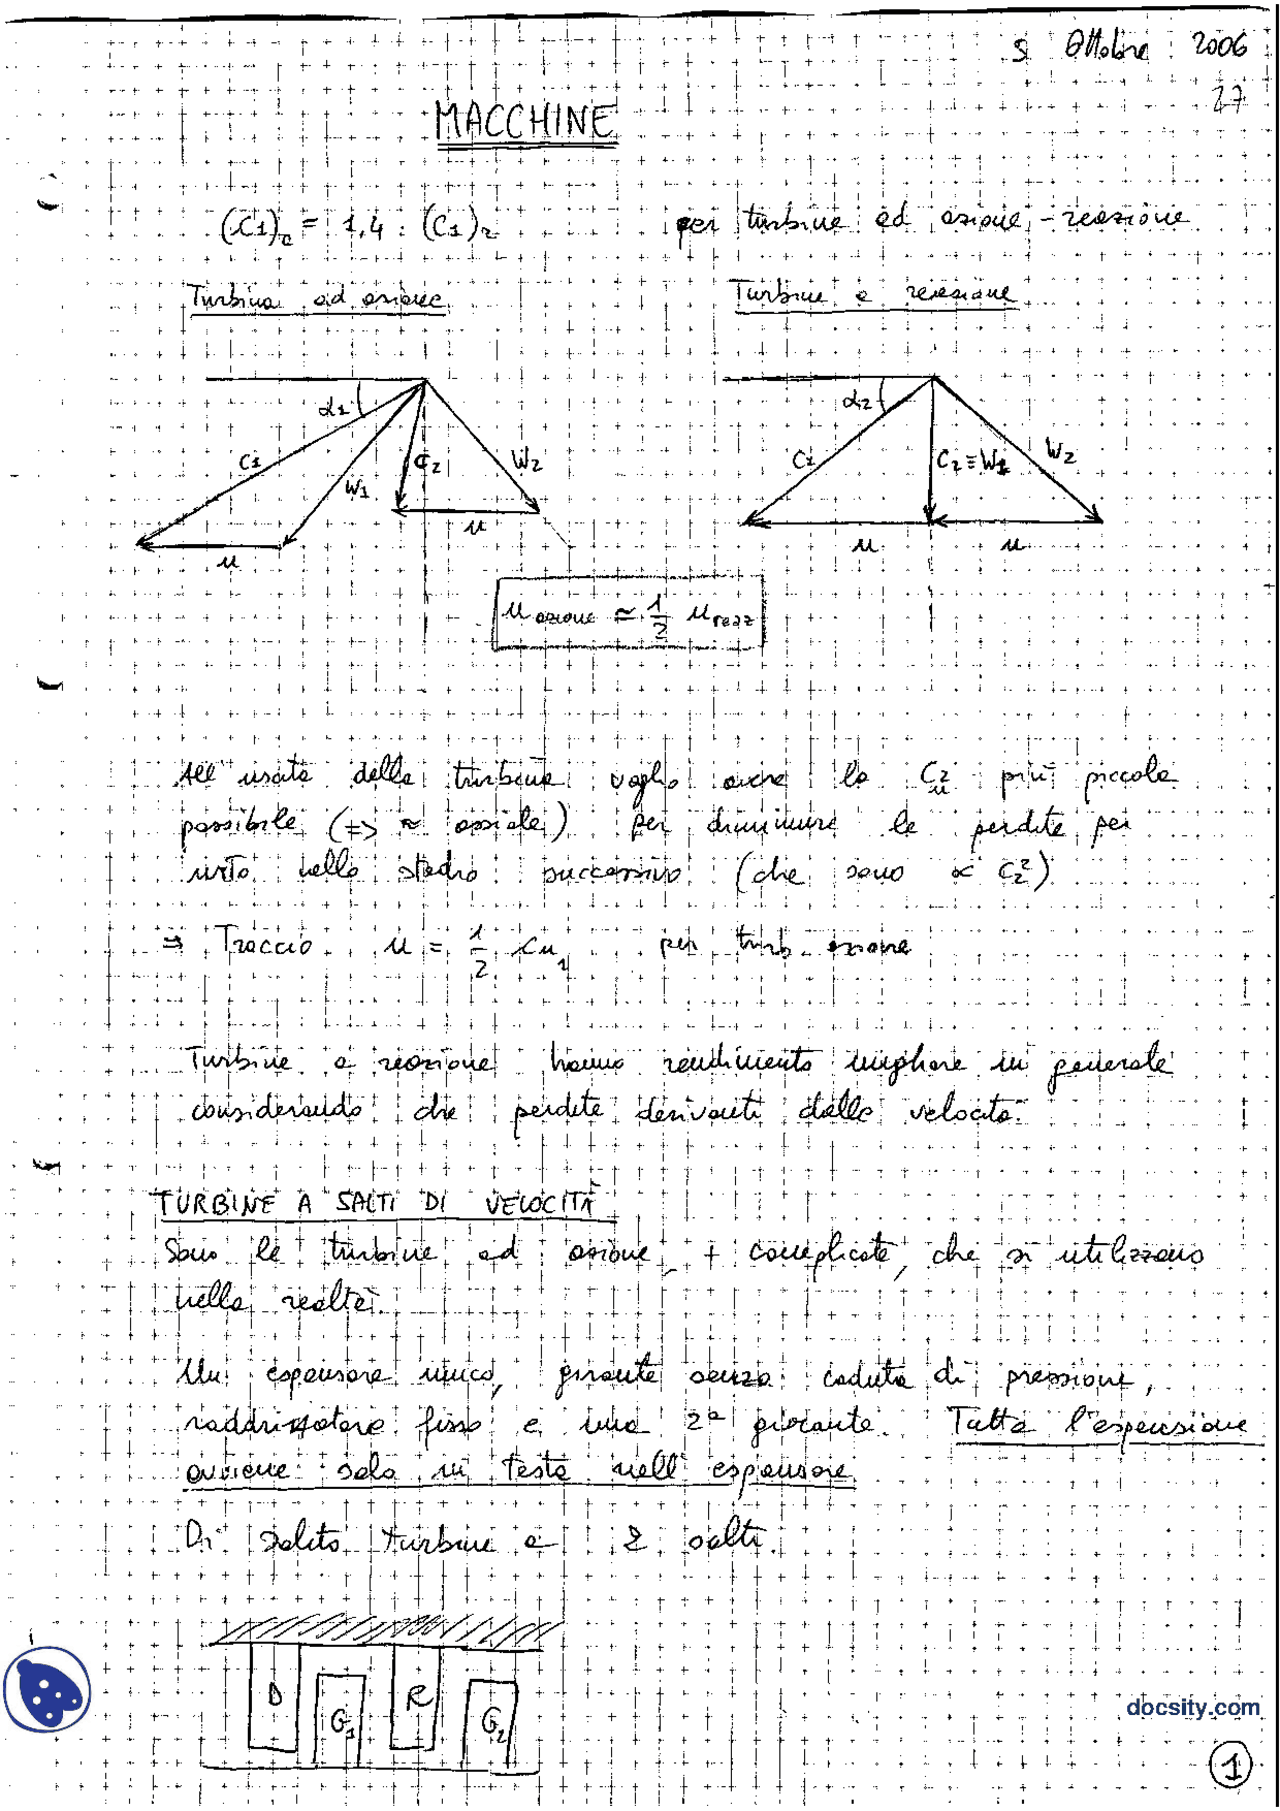 5 Ottobre 2006
27
MACCHINE
(C1)a = 1,4 (C1)r per turbine ad azione - reazione
Turbina ad azione Turbine a reazione
α1 α2
C1 W1 C2 W2 C1 C2 ≡ W1 W2
u u u u
u azione ≃ 1/2 u reaz
All'uscita della turbina voglio avere la C2u più piccola
possibile (=> ≈ assiale) per diminuire le perdite per
urto nello stadio successivo (che sono ∝ C2²)
⇒ Traccio u = 1/2 Cu1 per turb. azione
Turbine a reazione hanno rendimento migliore in generale
considerando che perdite derivanti dalla velocità.
TURBINE A SALTI DI VELOCITÀ
Sono le turbine ad azione, + complicate, che si utilizzano
nella realtà.
Un espansore unico, girante senza caduta di pressione,
raddrizzatore fisso e una 2ª girante. Tutta l'espansione
avviene solo in testa nell'espansore
Di solito turbine a 2 salti.
D G1 R G2
docsity.com
1